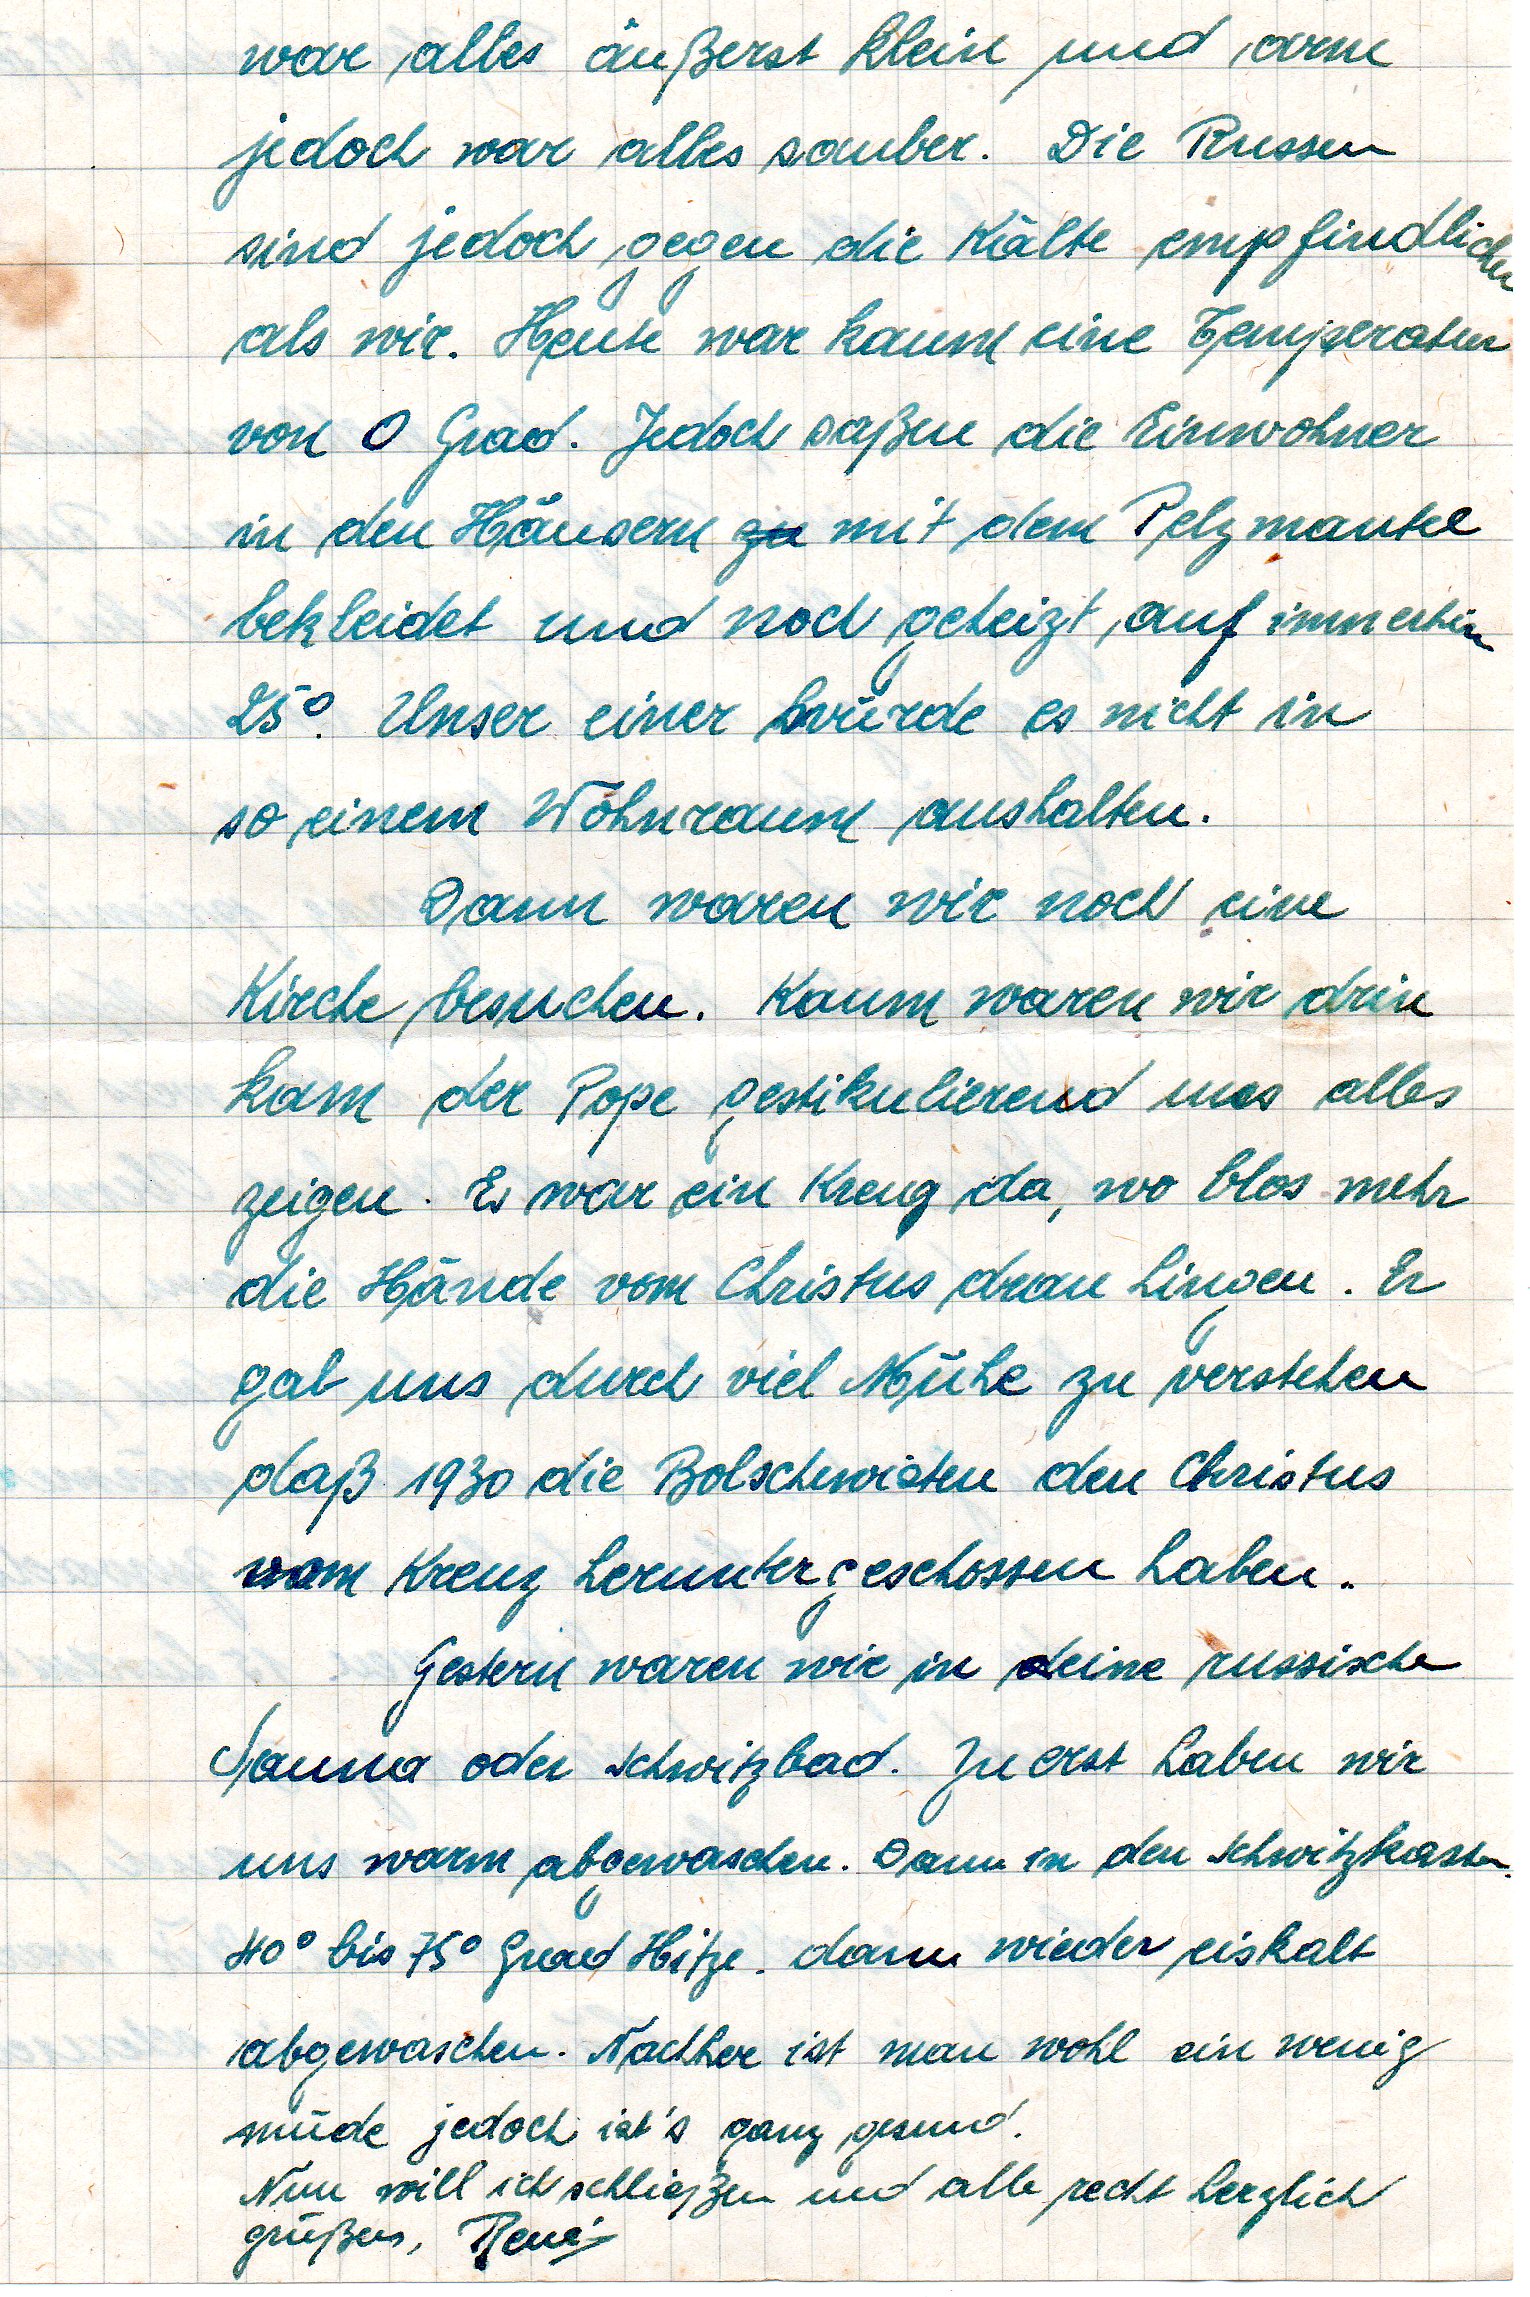 war alles äußerst klein und arm
jedoch war alles sauber. Die Russen
sind jedoch gegen die Kälte empfindlicher
als wir. Heute war kaum eine Temperatur
von 0 Grad. Jedoch saßen die Einwohner
in den Häusern zu mit dem Pelzmantel
bekleidet und noch geheizt auf immerhin
25°. Unser einer würde es nicht in
so einem Wohnraum aushalten.
Dann waren wir noch eine
Kirche besuchen. Kaum waren wir drin
kam der Pope gestikulierend uns alles
zeigen. Es war ein Kreuz da, wo blos mehr
die Hände vom Christus dran hingen. Er
gab uns durch viel Mühe zu verstehen
daß 1930 die Bolschewisten den Christus
vom Kreuz heruntergeschossen haben.
Gestern waren wir in eine russische
Sauna oder Schwitzbad. Zu erst haben wir
uns warm abgewaschen. Dann in den Schwitzkasten.
40° bis 75° Grad Hitze. dann wieder eiskalt
abgewaschen. Nachher ist man wohl ein wenig
müde jedoch ist's ganz gesund.
Nun will ich schließen und alle recht herzlich
grüßen, René